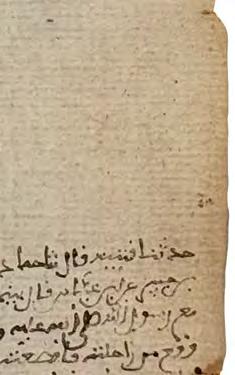 حدثنا قتيبة قال ثنا حماد
بن جبير عن ابن عباس قال بينما
مع رسول الله صلى الله عليه و
وقع من راحلته فاقصعته